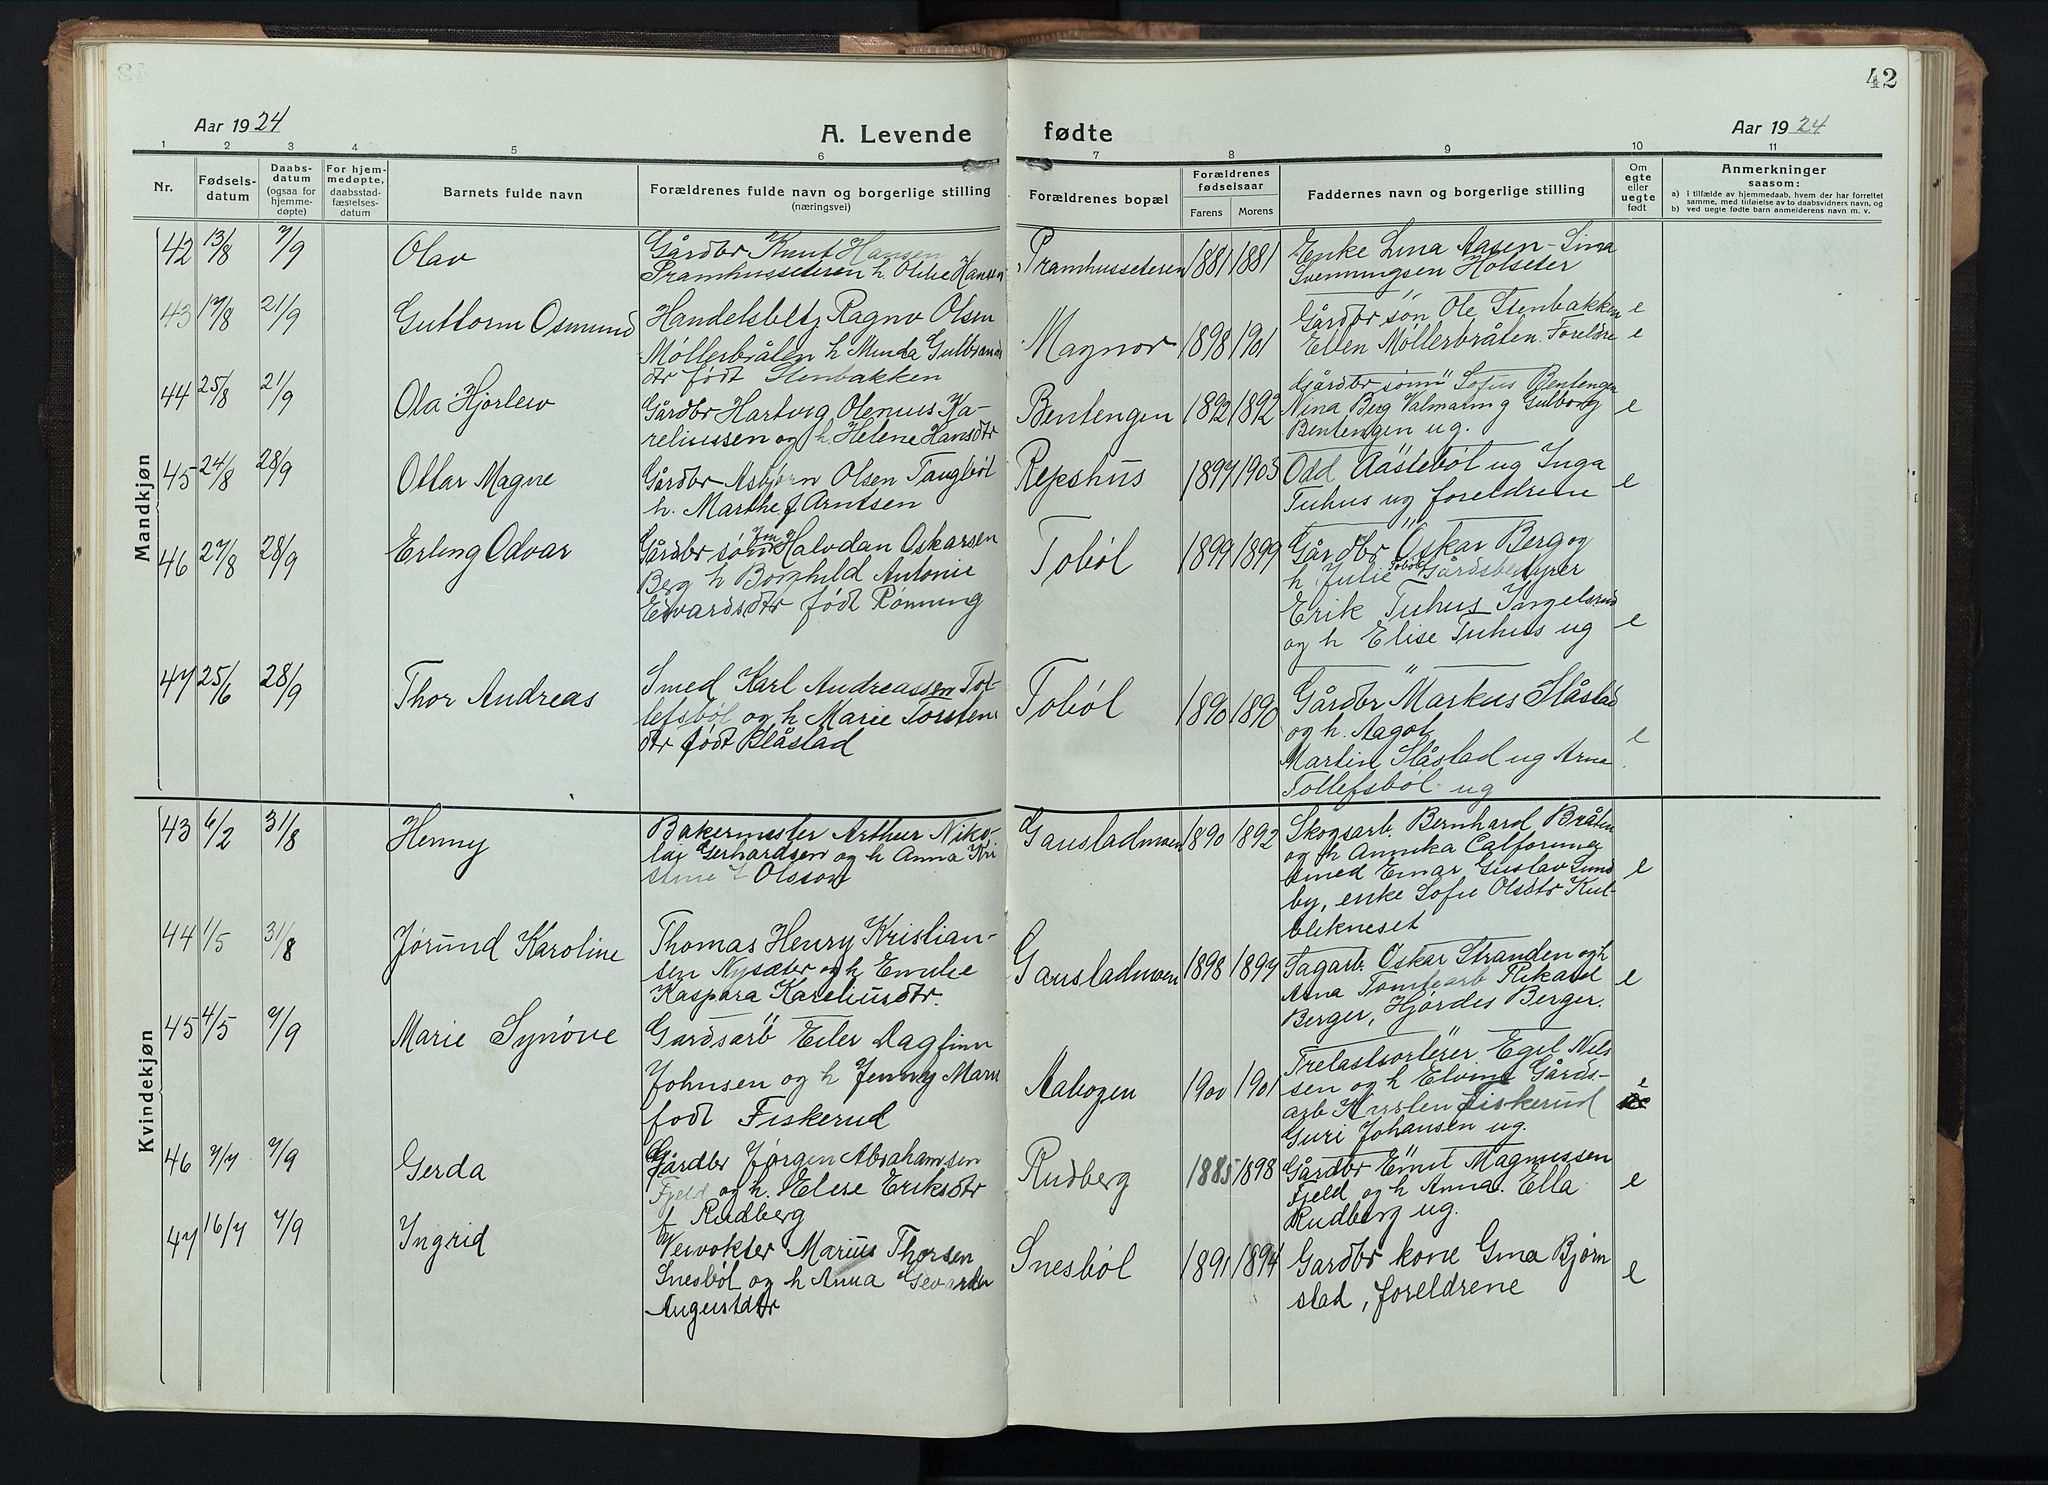 42
Aar 1924
A. Levende fødte
Aar 1924
1 2 3 4 5 6 7 8 9 10 11
Nr.
Fødsels-
datum
Daabs-
datum
(ogsaa for
hjemme-
døpte)
For hjem-
medøpte,
daabsstad-
fæstelses-
datum
Barnets fulde navn
Forældrenes fulde navn og borgerlige stilling
(næringsvei)
Forældrenes bopæl
Forældrenes
fødselsaar
Farens Morens
Faddernes navn og borgerlige stilling
Om
egte
eller
uegte
født
Anmerkninger
saasom:
a) i tilfælde av hjemmedaab, hvem der har forrettet
samme, med tilføielse av to daabsvidners navn, og
b) ved uegte fødte barn anmelderens navn m. v.
Mandkjøn
42 13/8 7/9 Olav
Gårdbr Knut Hansen
Pramhusseteren h. Oline Hansen
Pramhusseteren 1881 1881
Enke Lina Aasen - Lina
Svenningsen Holseter
43 17/8 21/9 Guttorm Osmund
Handelsbetj Ragnv Olsen
Møllerbråten h Minda Gulbrands
dtr født Stenbakken
Magnor 1898 1901
Gårdbr søn Ole Stenbakken e
Ellen Møllerbråten. Foreldre e
44 25/8 21/9 Ola Hjorlev
Gårdbr Hartvig Olenius Ka-
reliussen og h. Helene Hansdtr
Bentengen 1892 1892
Gårdbr sønn Sofus Bentengen
Nina Berg Valmann g Gulborg
Bentengen ug. e
45 24/8 28/9 Ottar Magne
Gårdbr Asbjørn Olsen Tangbøl
h. Marthe f Arntsen
Repshus 1897 1903
Odd Aastebøl ug Inga
Tuhus ug foreldrene e
46 27/8 28/9 Erling Odvar
Gårdbr søn Halvdan Oskarsen
Berg h Borghild Antonie
Edvardsdtr født Rønning
Tobøl 1899 1899
Gårdbr Oskar Berg og
h Julie Tobøl Gårdsbestyrer
Erik Tuhus Ingelsrud
og h Elise Tuhus ug e
47 25/6 28/9 Thor Andreas
Smed Karl Andreassen Tol-
lefsbøl og h Marie Torstens
dtr født Slåstad
Tobøl 1890 1890
Gårdbr Markus Slåstad
og h. Aagot
Martin Slåstad ug Arna e
Tollefsbøl ug
Kvindekjøn
43 6/2 31/8 Henny
Bakermester Arthur Niko-
lai Gerhardsen og h Anna Kri
stine f Olsson
Gaustadmoen 1890 1892
Skogsarb. Bernhard Bråten
og h Annika
smed Einar Gustav Sund
by, enke Sofie Olsdtr Kul-
blikneset e
44 1/5 31/8 Jørund Karoline
Thomas Henry Kristian-
sen Nysæter og h Emilie
Kaspara Kareliusdtr.
Gaustadmoen 1898 1897
Sagarb. Oskar Stranden og h
Arna Tomtearb Rikard e
Berger, Hjørdis Berger.
45 4/5 7/9 Marie Synøve
Gardsarb Eiler Dagfinn
Johnsen og h Jenny Marie
født Fiskerud
Aabogen 1900 1901
Trelastsorterer Egil Nils
sen og h Elvine Gårds-
arb Karsten Fiskerud
Guri Johansen ug. e
46 7/7 7/9 Gerda
Gårdbr Jørgen Abrahamsen
Fjeld og h. Elise Eriksdtr
f Rudberg
Rudberg 1885 1898
Gårdbr Emil Magnussen
Fjeld og h Anna. Ella
Rudberg ug. e
47 16/7 7/9 Ingrid
Veivokter Marius Thorsen
Snesbøl og h Anna
Augustdtr
Snesbøl 1891 1894
Gardbr kone Gina Bjørn
stad, foreldrene e